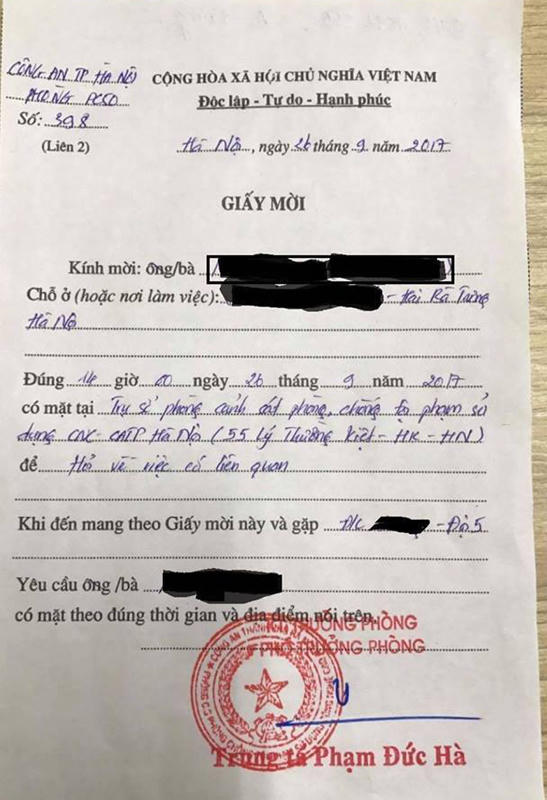 CÔNG AN TP HÀ NỘI
PHÒNG PC50
Số: 398
(Liên 2)
CỘNG HÒA XÃ HỘI CHỦ NGHĨA VIỆT NAM
Độc lập - Tự do - Hạnh phúc
Hà Nội, ngày 26 tháng 9 năm 2017
GIẤY MỜI
Kính mời: ông/bà
Chỗ ở (hoặc nơi làm việc): - Hai Bà Trưng
Hà Nội
Đúng 14 giờ 00 ngày 26 tháng 9 năm 2017
có mặt tại Trụ sở phòng cảnh sát phòng, chống tội phạm sử
dụng CNC - CATP Hà Nội (55 Lý Thường Kiệt - HK - HN)
để Hỏi về việc có liên quan
Khi đến mang theo Giấy mời này và gặp Đ/c - Đội 5
Yêu cầu ông /bà
có mặt theo đúng thời gian và địa điểm nói trên.
KT TRƯỞNG PHÒNG
PHÓ TRƯỞNG PHÒNG
Trung tá Phạm Đức Hà